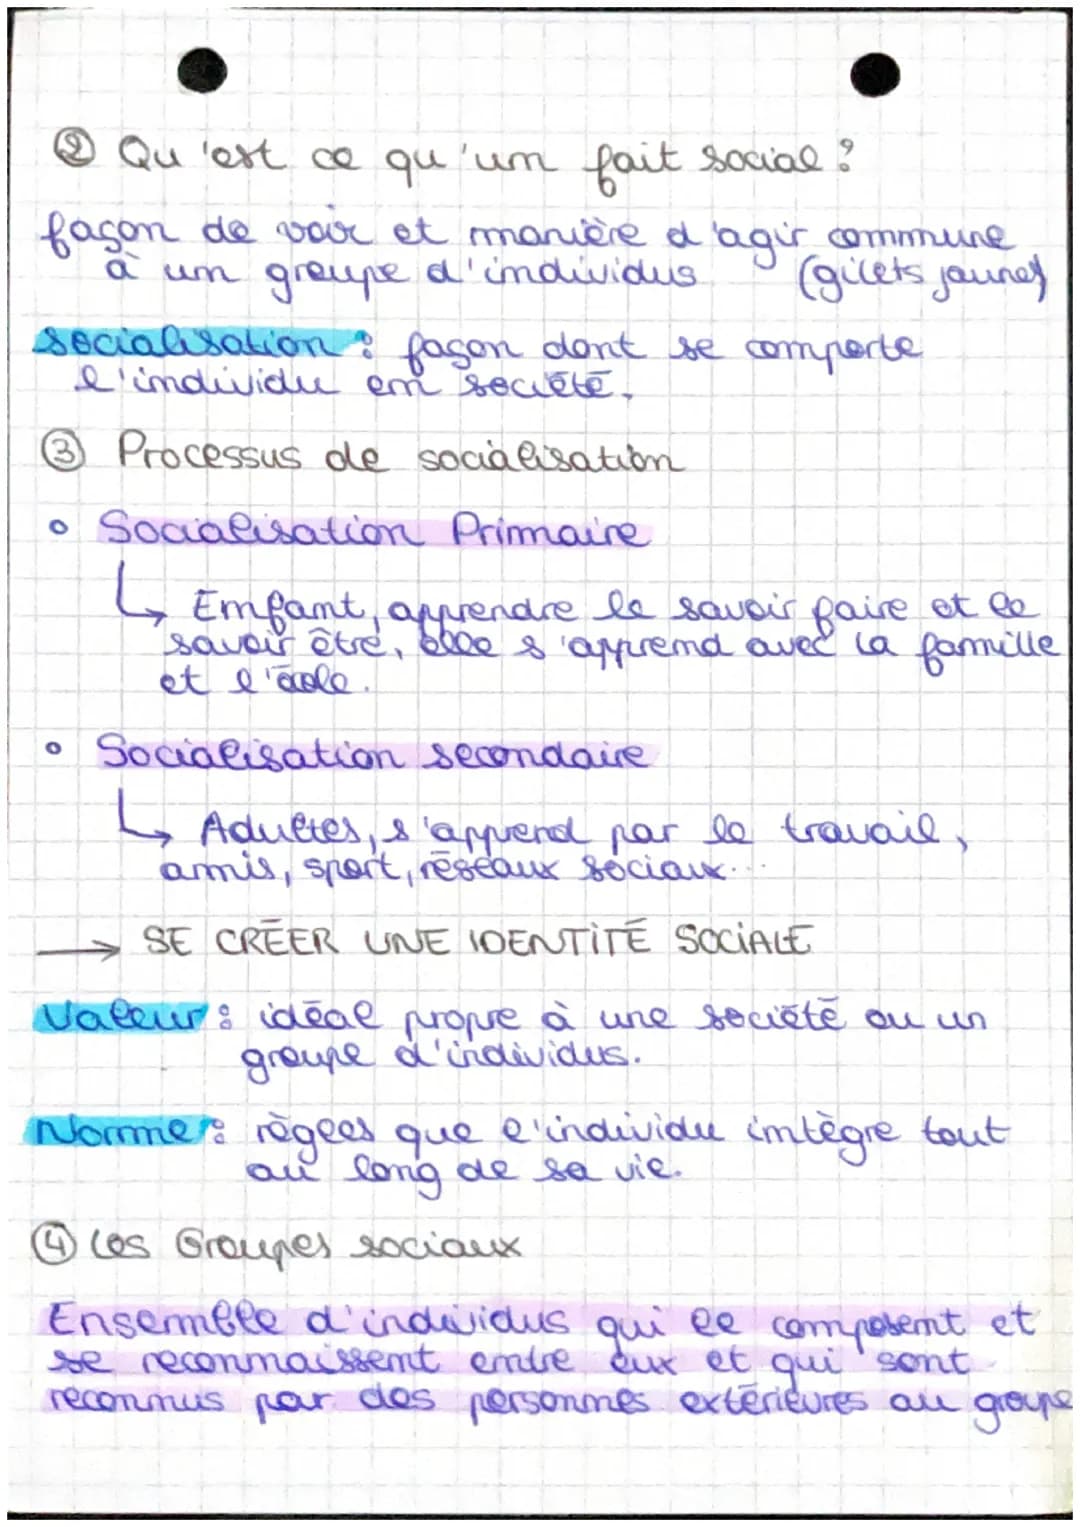 ② Qu'est ce qu'un fait social ?
façon de voir et manière d'agir commune
à un groupe d'individus (gilets jaunes)
socialisation : façon dont se comporte
l'individu en société.
③ Processus de socialisation
° Socialisation Primaire
↳ Enfant, apprendre le savoir faire et le
savoir être, elle s'apprend avec la famille
et l'école.
° Socialisation secondaire
↳ Adultes, s'apprend par le travail,
amis, sport, réseaux sociaux...
→ SE CRÉER UNE IDENTITÉ SOCIALE
Valeur : idéal propre à une société ou un
groupe d'individus.
Norme : règles que l'individu intègre tout
au long de sa vie.
④ Les Groupes sociaux
Ensemble d'individus qui le composent et
se reconnaissent entre eux et qui sont
reconnus par des personnes extérieures au groupe